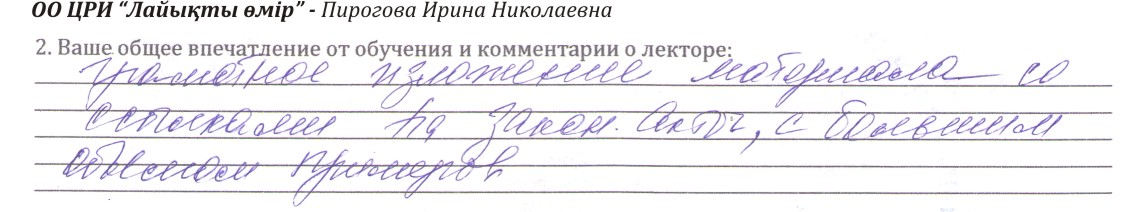 ОО ЦРИ “Лайықты өмір” - Пирогова Ирина Николаевна
2. Ваше общее впечатление от обучения и комментарии о лекторе:
грамотное изложение материала со
ссылками на закон. акты, с большим
объемом примеров